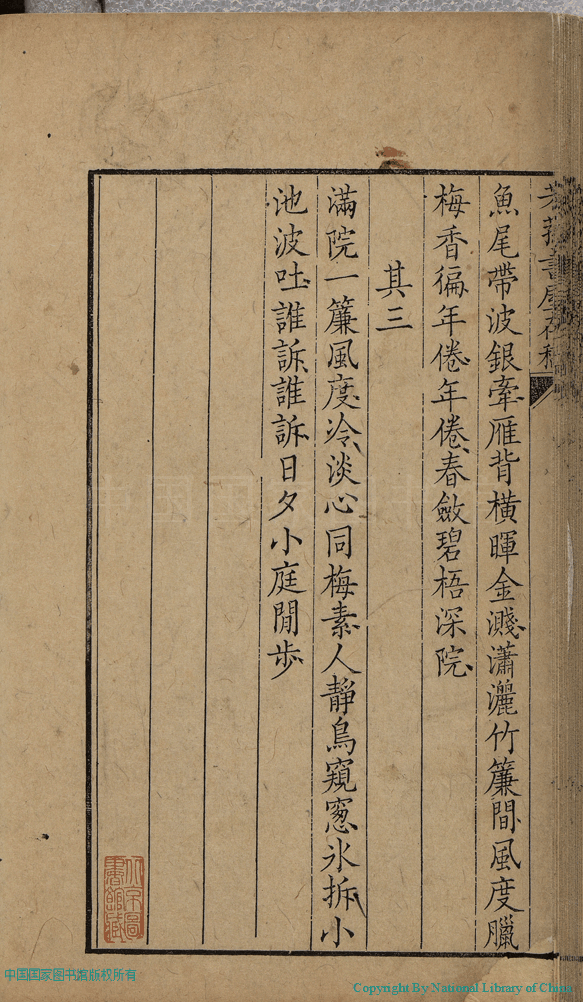 魚尾帶波銀牽雁背橫暉金濺瀟灑竹簾間風度臘
梅香徧年倦年倦春斂碧梧深院
其三
滿院一簾風度冷淡心同梅素人靜鳥窺窻氷拆小
池波吐誰訴誰訴日夕小庭閒步
北京圖書館藏
中国国家图书馆版权所有
Copyright By National Library of China